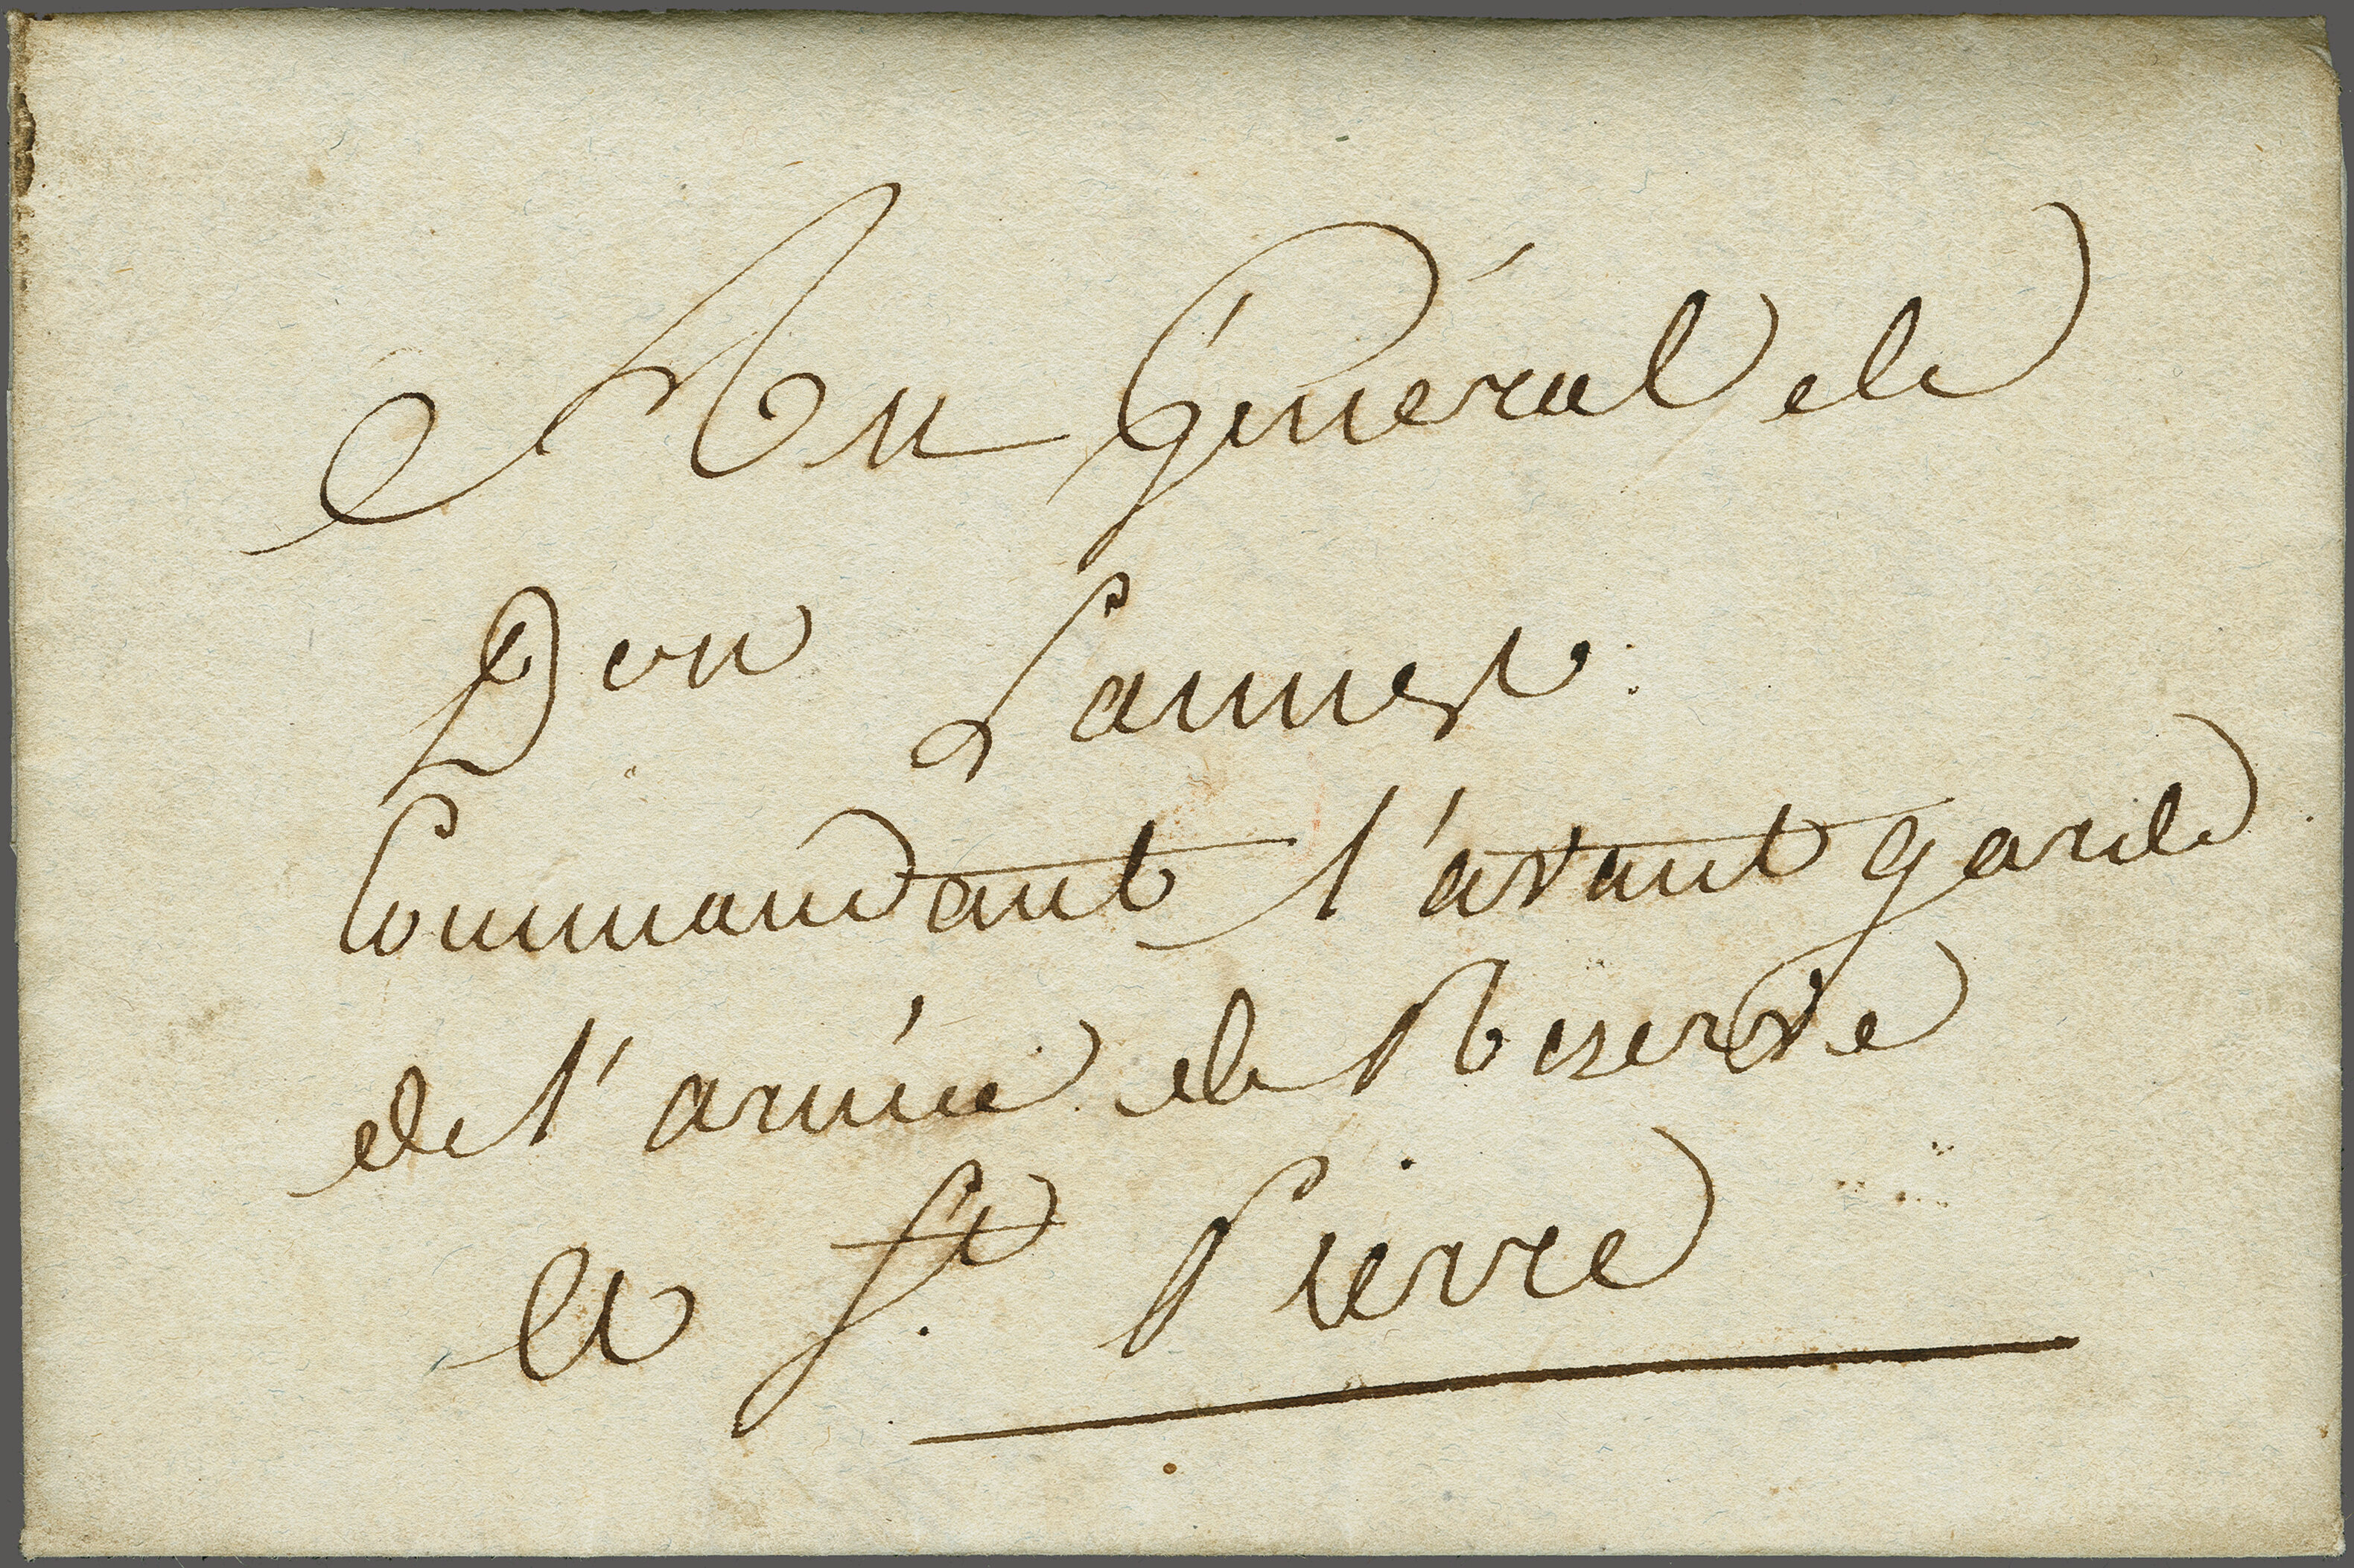 Au Général de
Don Lannes
Commandant l'avant garde
de l'armée de Reserve
a St. Pierre